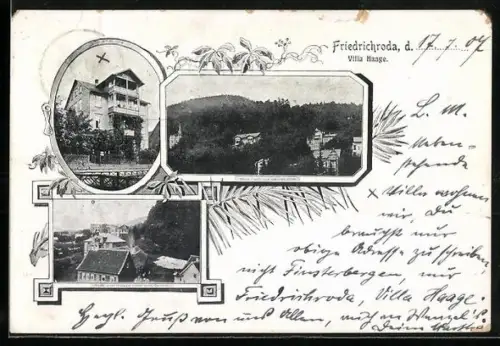 Friedrichroda, d. 17.7.07
Villa Haage.
L. M.
Neben-
stehende
x Villa wohnen
wir, du
brauchst nur
obige Adresse zu schreiben
nicht Finsterbergen nur
Friedrichroda, Villa Haage.
Herzl. Gruß von uns Allen, auch an Wenzel's
Deine Martha